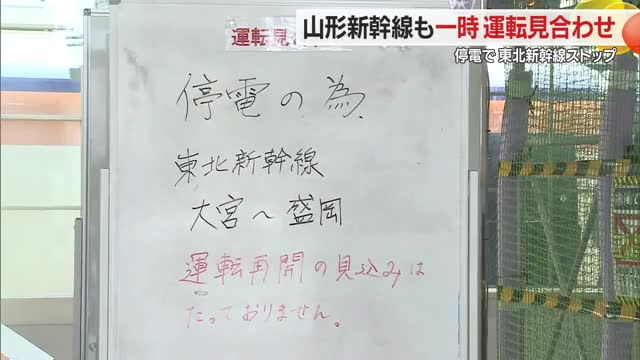 山形新幹線も一時 運転見合わせ
停電で 東北新幹線ストップ
運転見
停電の為、
東北新幹線
大宮〜盛岡
運転再開の見込みは
たっておりません。